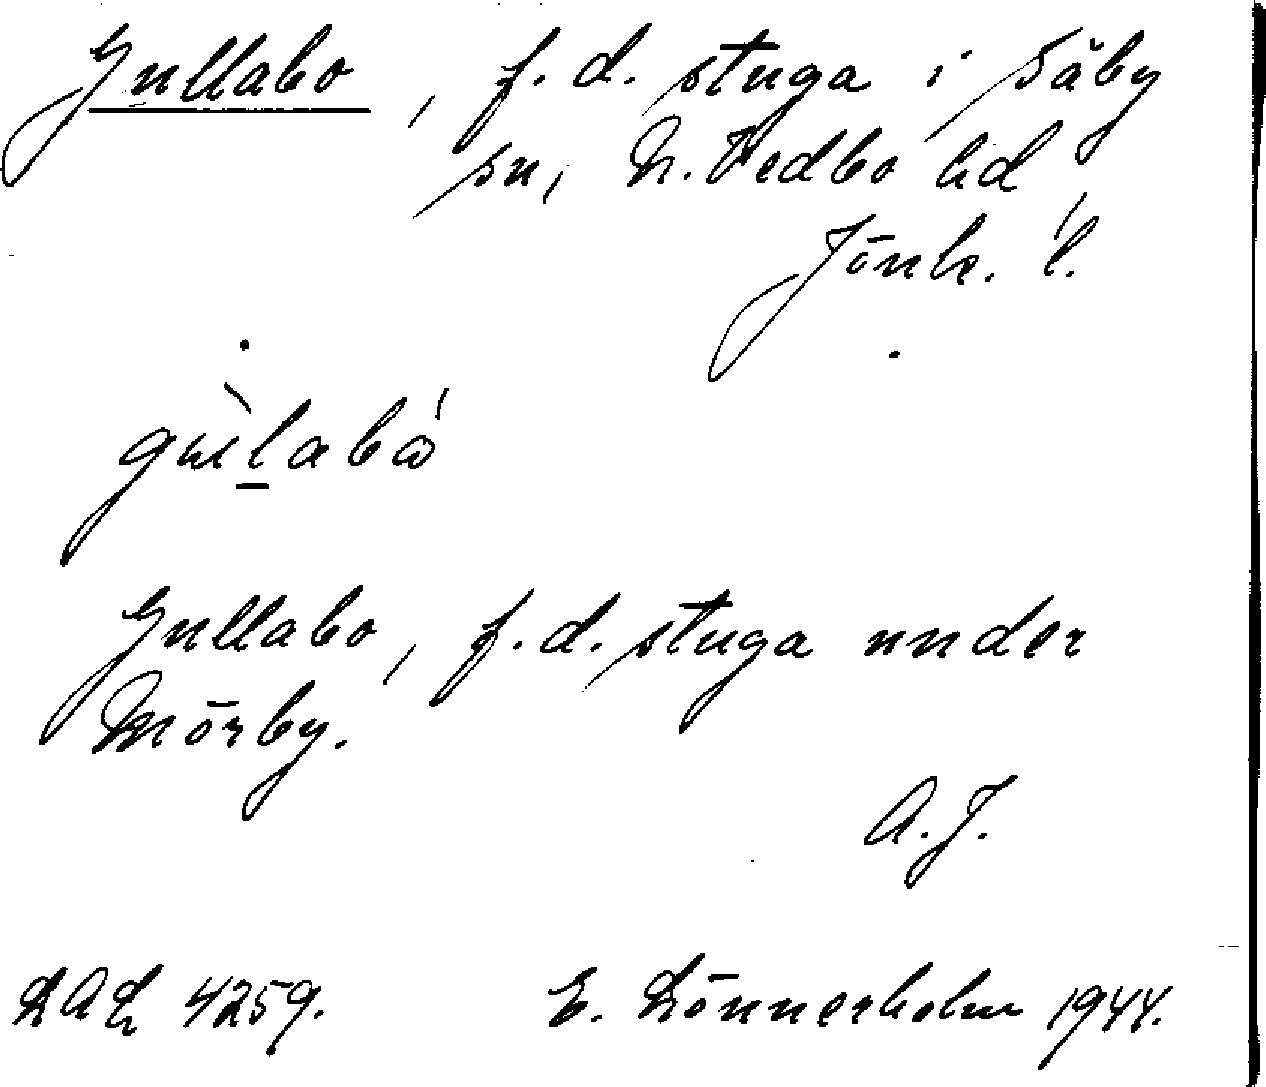 Gullabo, f.d. stuga i Säby
sn, N. Vedbo hd,
Jönk. l.
gu̇̀l̲abώ
Gullabo, f.d. stuga under
Mörby.
A.J.
LAL 4259. E. Lönnerholm 1944.